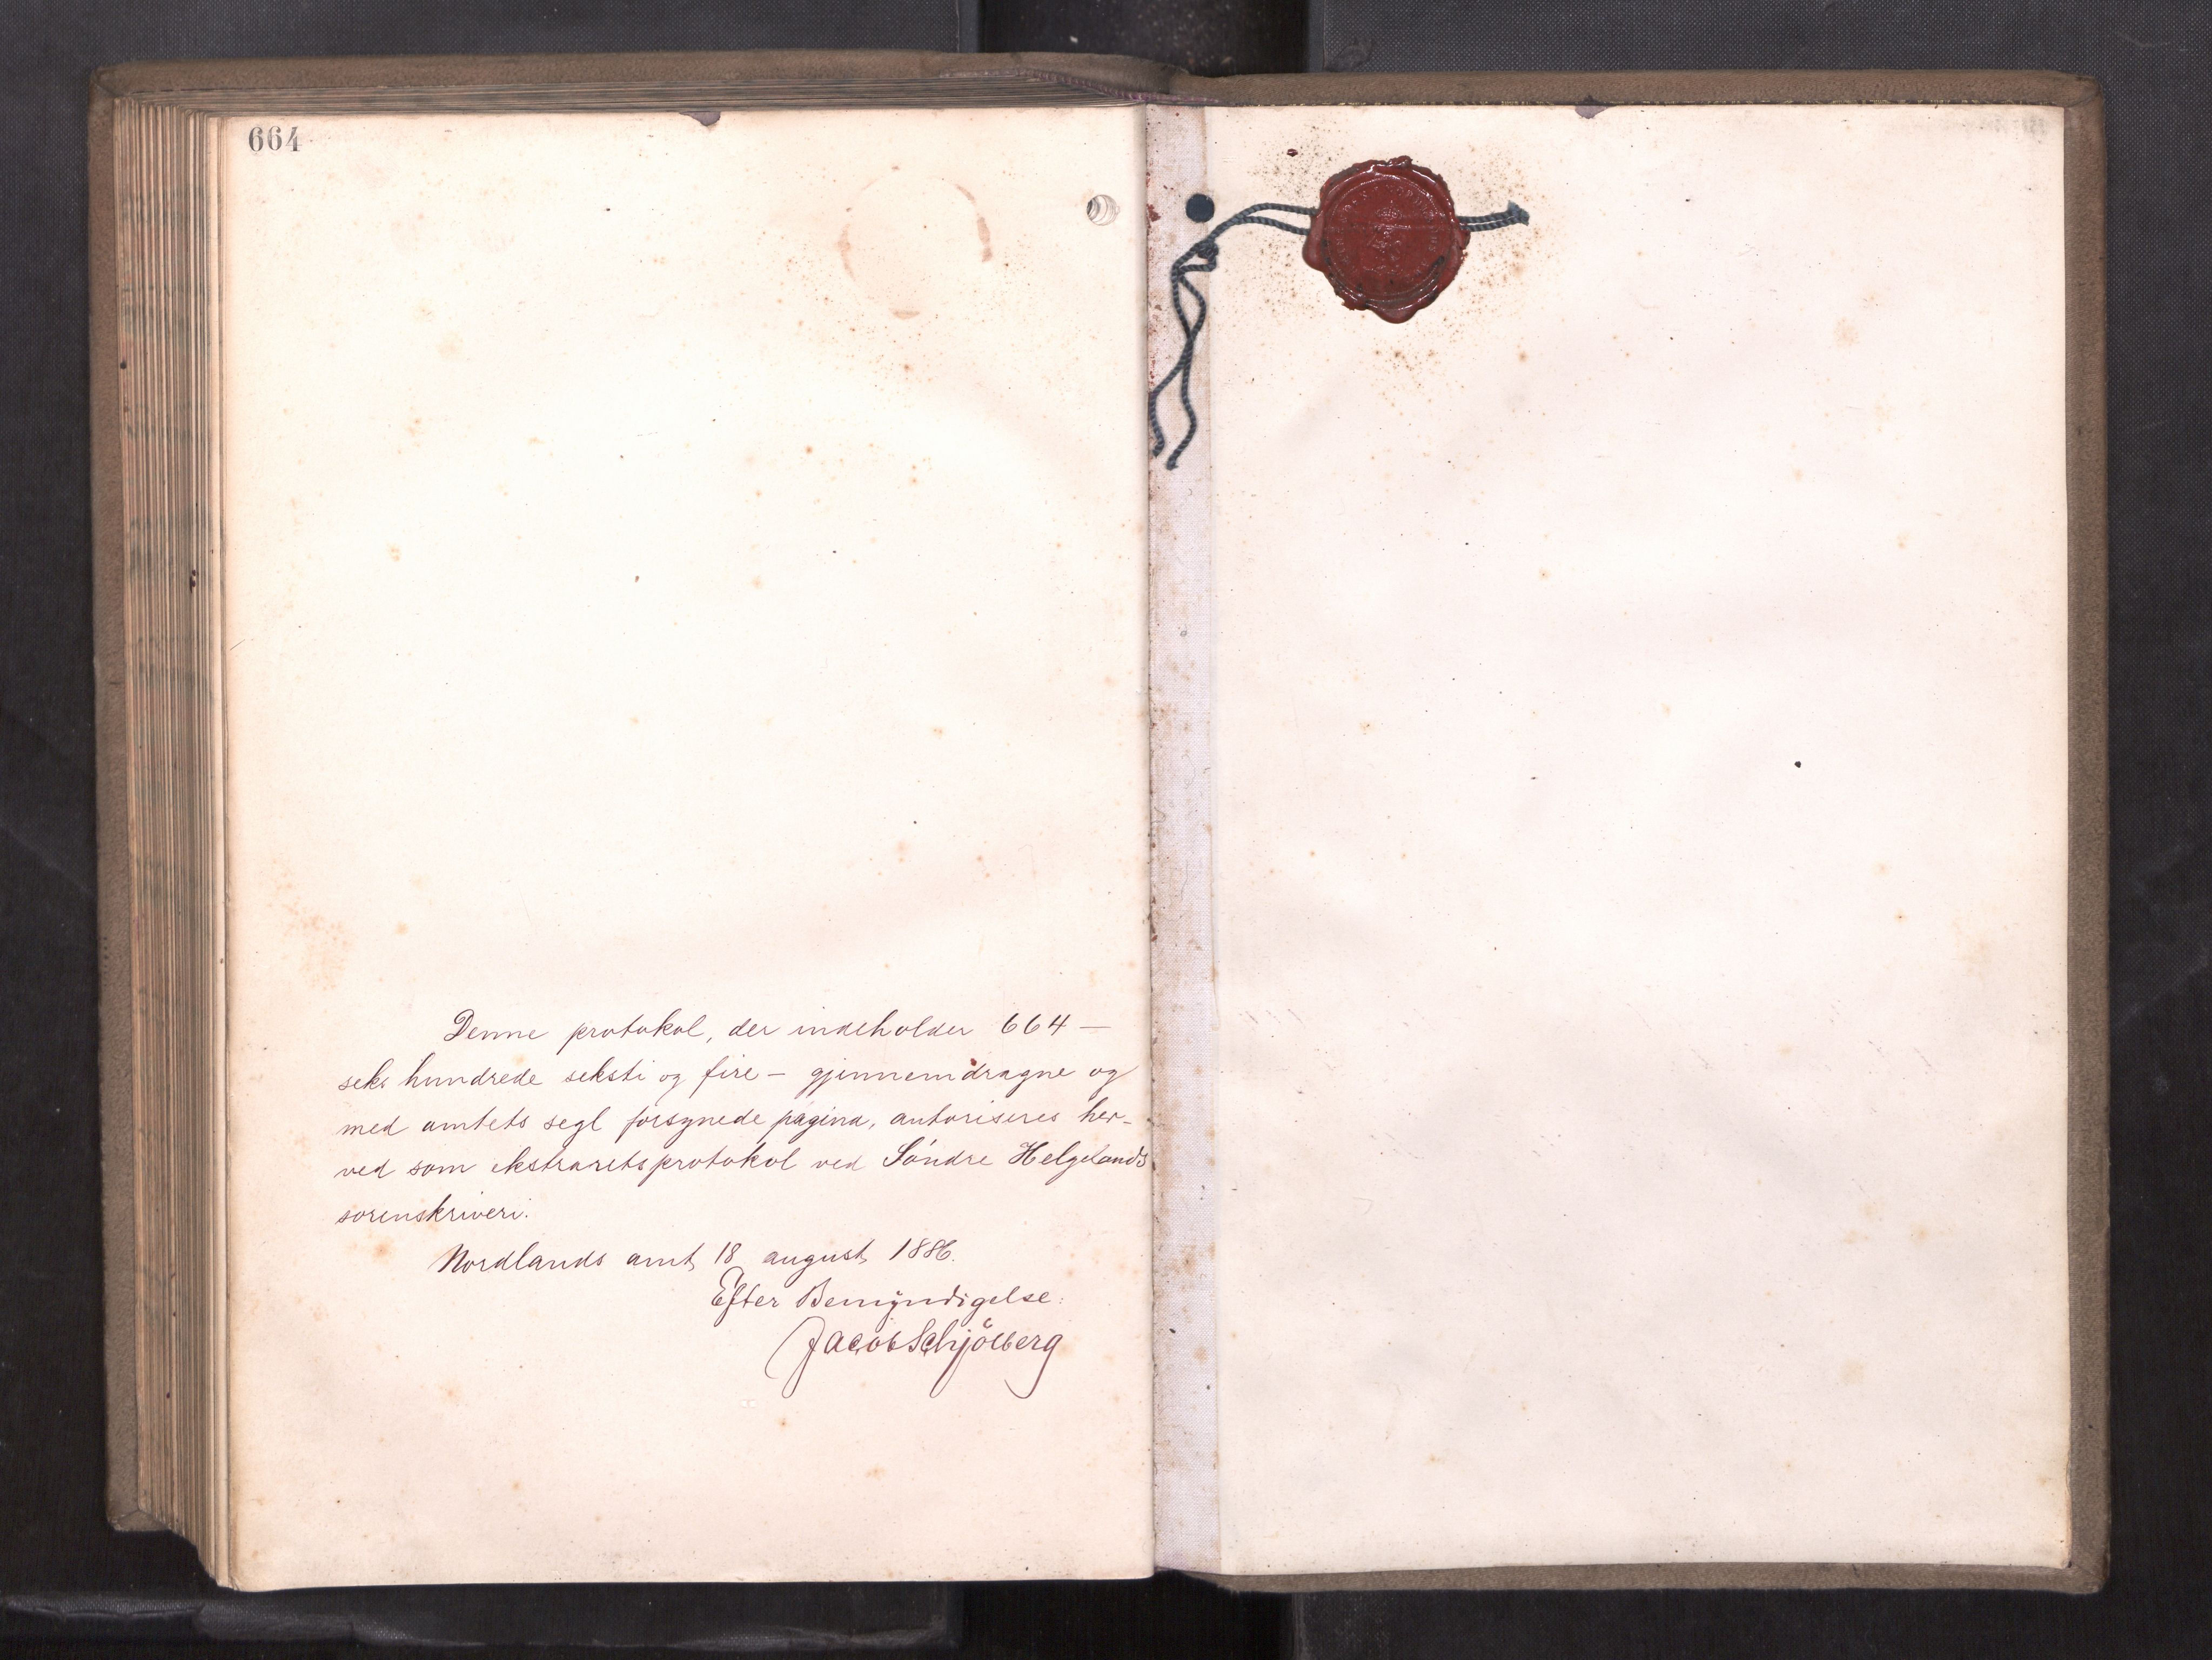 664
Denne protokol, der indeholder 664 —
seks hundrede seksti og fire — gjennemdragne og
med amtets segl forsynede pagina, autoriseres her-
ved som ekstraretsprotokol ved Søndre Helgelands
sorenskriveri.
Nordlands amt, 18 august 1886.
Efter Bemyndigelse:
Jacob Schjölberg